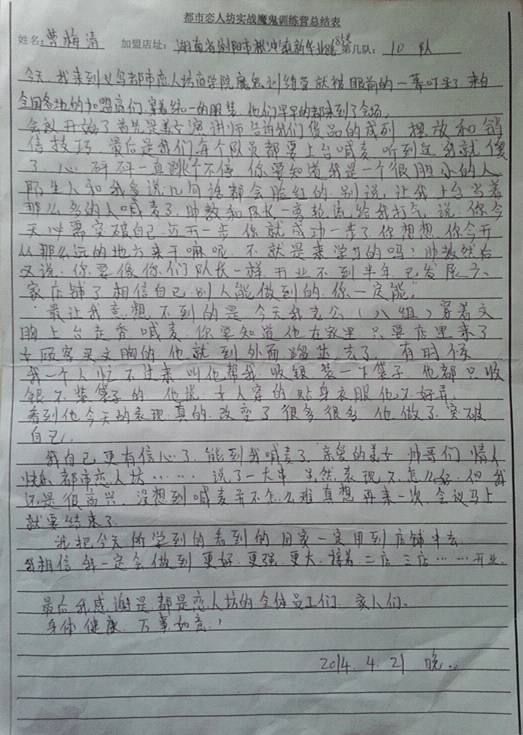 都市恋人坊实战魔鬼训练营总结表
姓名:曹梅清 加盟店址:湖南省浏阳市 新年华 第几队:10队
今天我来到义乌都市恋人坊商学院魔鬼训练营就被眼前的一幕吓呆了来自
全国各地的加盟商们穿着统一的服装他们早早的都来到了会场。
会议开始了首先是美女演讲师告诉我们货品的陈列摆放和销
售技巧 最后是我们每个队员都要上台喊麦,听到这我就傻
了 心砰砰一直跳个不停你要知道我是一个很胆小的人
陌生人和我多说几句话都会脸红的别说让我上台当着
那么多的人喊麦了助教和队长一直鼓励给我打气说:你今
天必需突破自己迈开一步你就成功一步了你想想你今天
从那么远的地方来干嘛呢 不就是来学习的吗?助教然后
又说:你要像你们队长一样开业不到半年已发展六
家店铺了相信自己别人能做到的你一定能”
最让我意想不到的是今天我老公(八组)穿着文
胸上台走秀喊麦你要知道他在家里只要店里来了
女顾客买文胸的他就到外面溜达去了。有时候
我一个人忙不过来叫他帮我收银装一下袋子他都只收
银不装袋子的他说:女人穿的贴身衣服他不好弄
看到他今天的表现真的改变了很多很多他做了突破
自己.
我自己更有信心了能到我喊麦了亲爱的美女帅哥们 情人
都市恋人坊……说了一大串虽然表现不怎么好但我
还是很高兴 没想到喊麦并不怎么难真想再来一次会议马上
就要结束了
我把今天所学到的看到的回家一定用到店铺中去
我相信 我一定会做到更好更强更大.接着二店三店……开业.
最后我感谢是都是恋人坊的全体员工们 家人们.
身体健康 万事如意!
2014.4.21 晚..